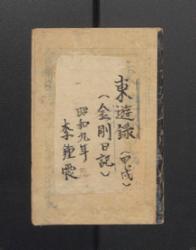 東遊録（甲戌）
（金剛日記）
昭和九年
李鍾震